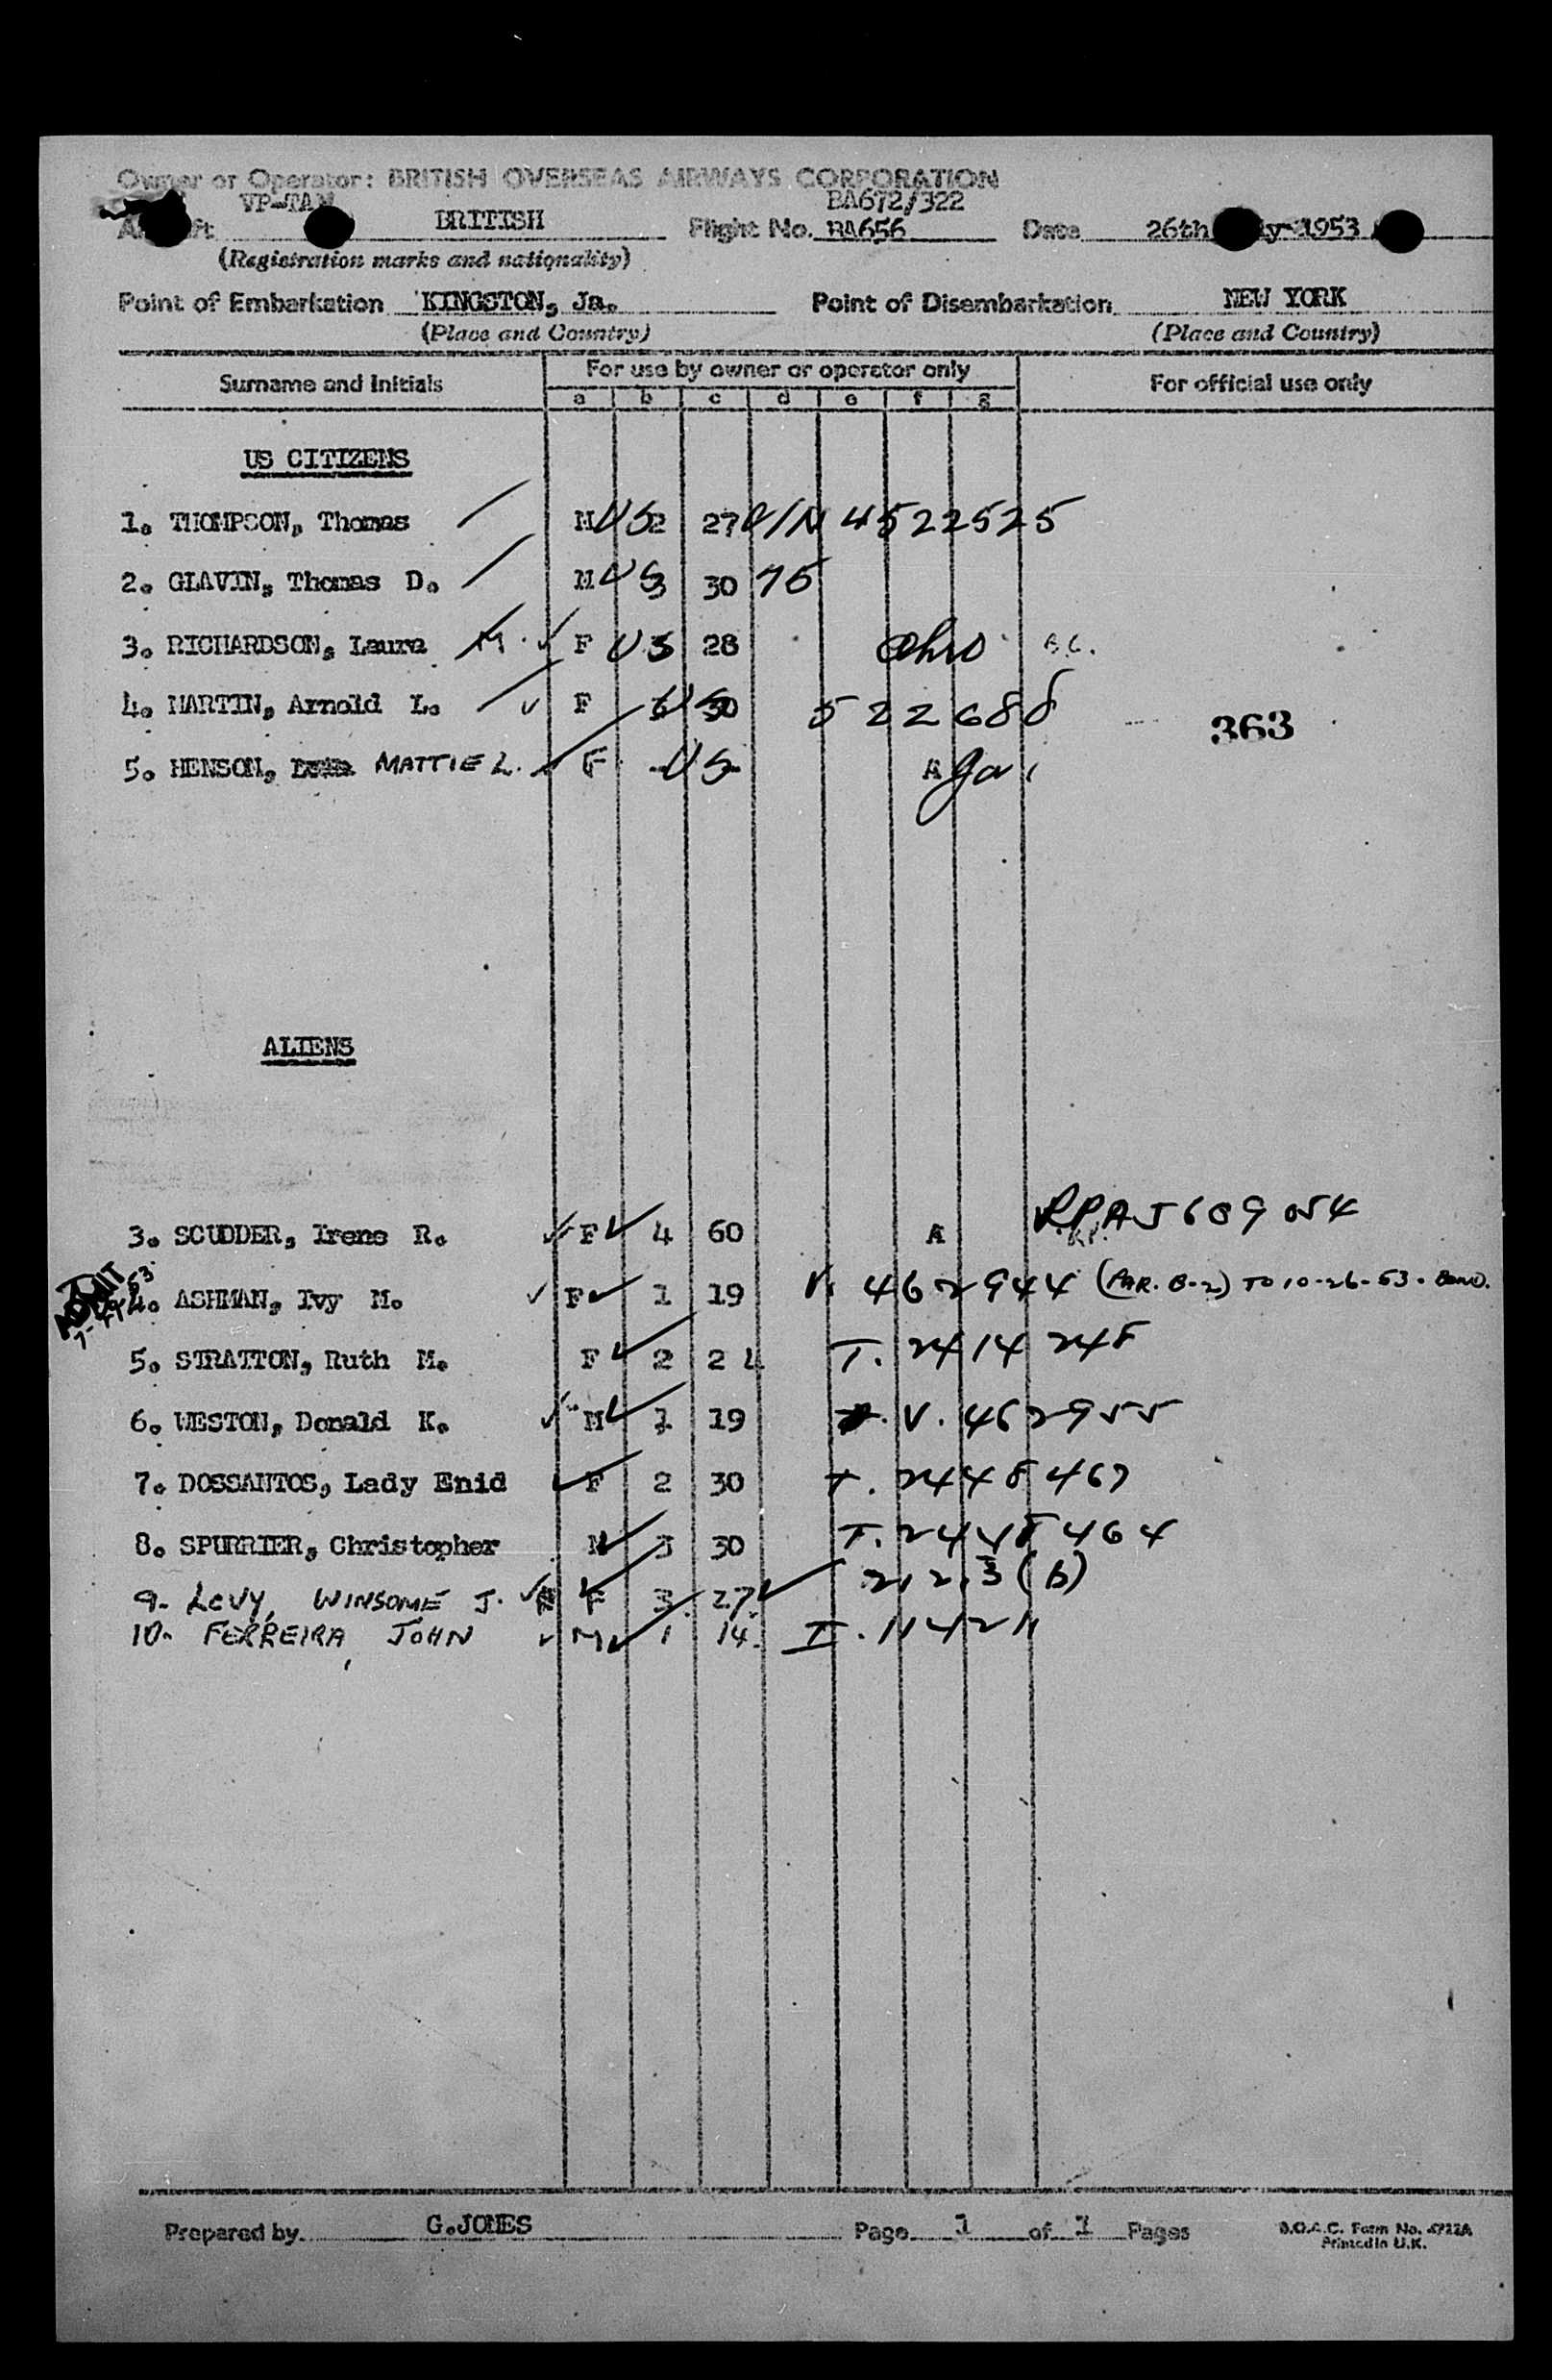 Owner or Operator: BRITISH OVERSEAS AIRWAYS CORPORATION
VP-TAM BRITISH Flight No. BA672/322 BA656 Date 26th 1953
(Registration marks and nationality)
Point of Embarkation KINGSTON, Ja. Point of Disembarkation NEW YORK
(Place and Country) (Place and Country)
Surname and Initials For use by owner or operator only For official use only
a b c d e f g
US CITIZENS
1. THOMPSON, Thomas M US 2 27 V/N 4522525
2. GLAVIN, Thomas D. M US 3 30 75
3. RICHARDSON, Laura M. F US 28 Ohio B.C.
4. MARTIN, Arnold L. F US 30 522688
363
5. HENSON, MATTIE L. F US A Ga
ALIENS
3. SCUDDER, Irene R. F 4 60 A RPA J609054
ADMIT
4. ASHMAN, Ivy M. F 1 19 V. 462944 (PAR. B-2) TO 10-26-53. BOND.
5. STRATTON, Ruth M. F 2 24 T. 2414248
6. WESTON, Donald K. M 1 19 V. 462955
7. DOSSANTOS, Lady Enid F 2 30 T. 2448467
8. SPURRIER, Christopher M 3 30 T. 2448464
9- LEVY, WINSOME J. F 3 27 212.3(b)
10- FERREIRA, JOHN M 1 14 I. 114211
Prepared by G.JONES Page 1 of 1 Pages
B.O.A.C. Form No.
Printed in U.K.